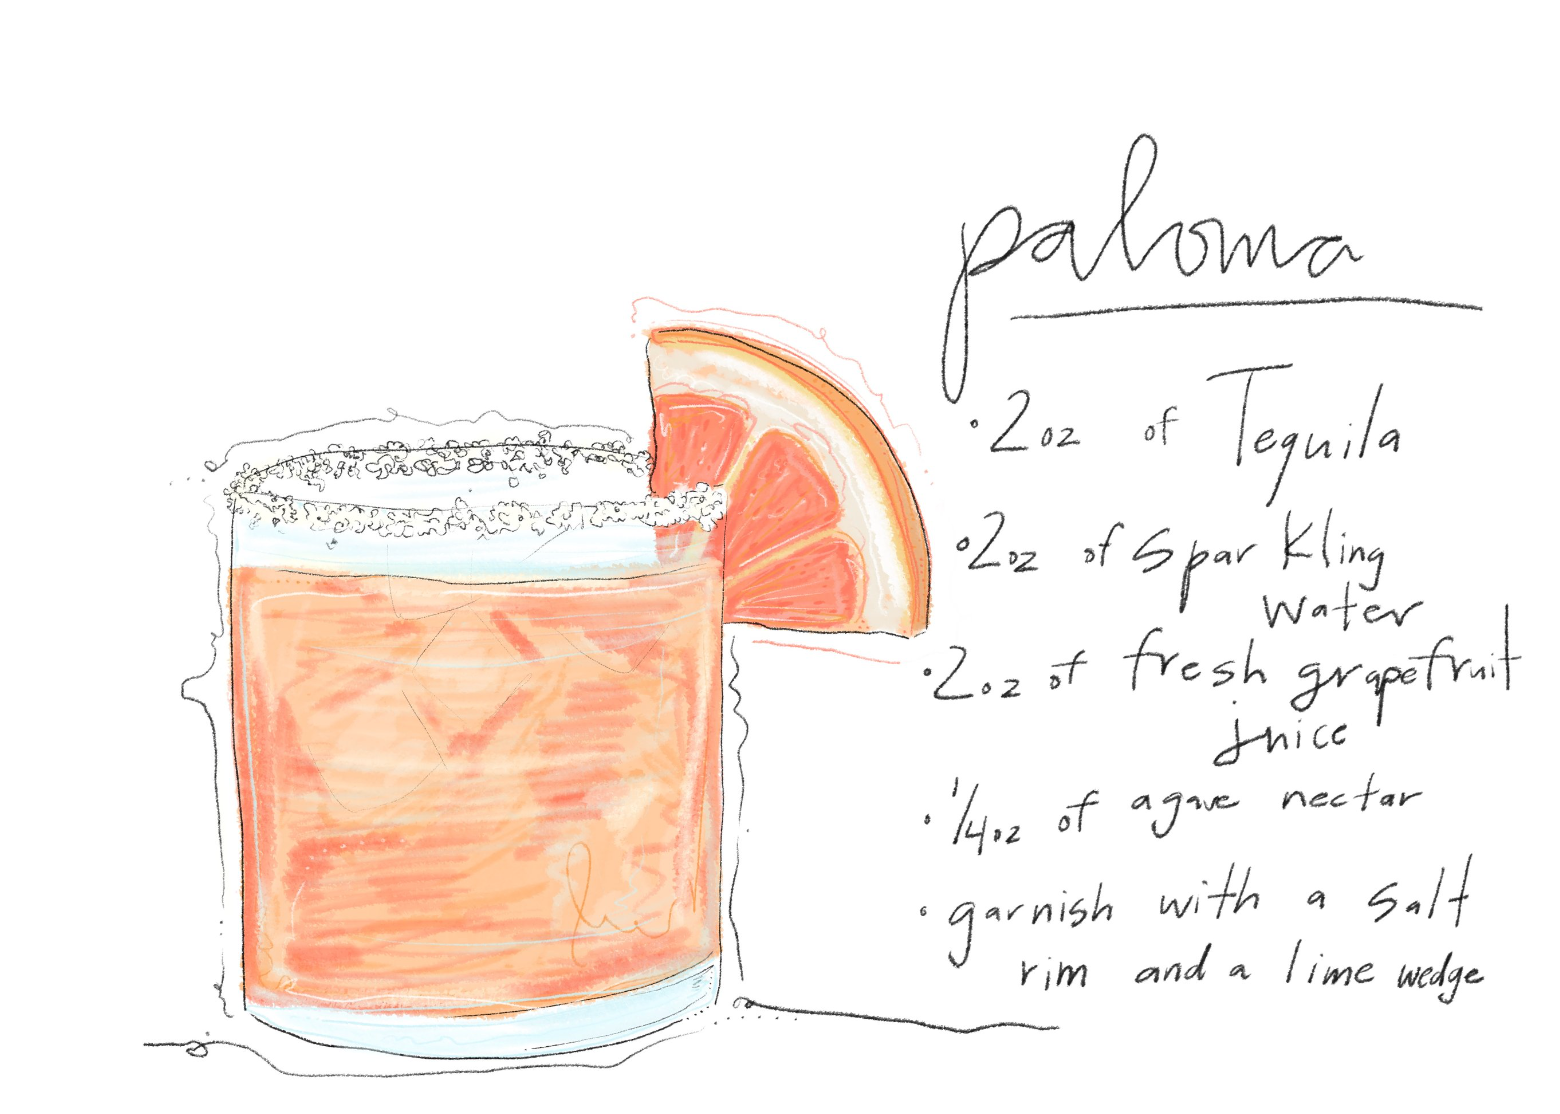 paloma
• 2oz of Tequila
• 2oz of sparkling
water
• 2oz of fresh grapefruit
juice
• 1/4oz of agave nectar
• garnish with a salt
rim and a lime wedge